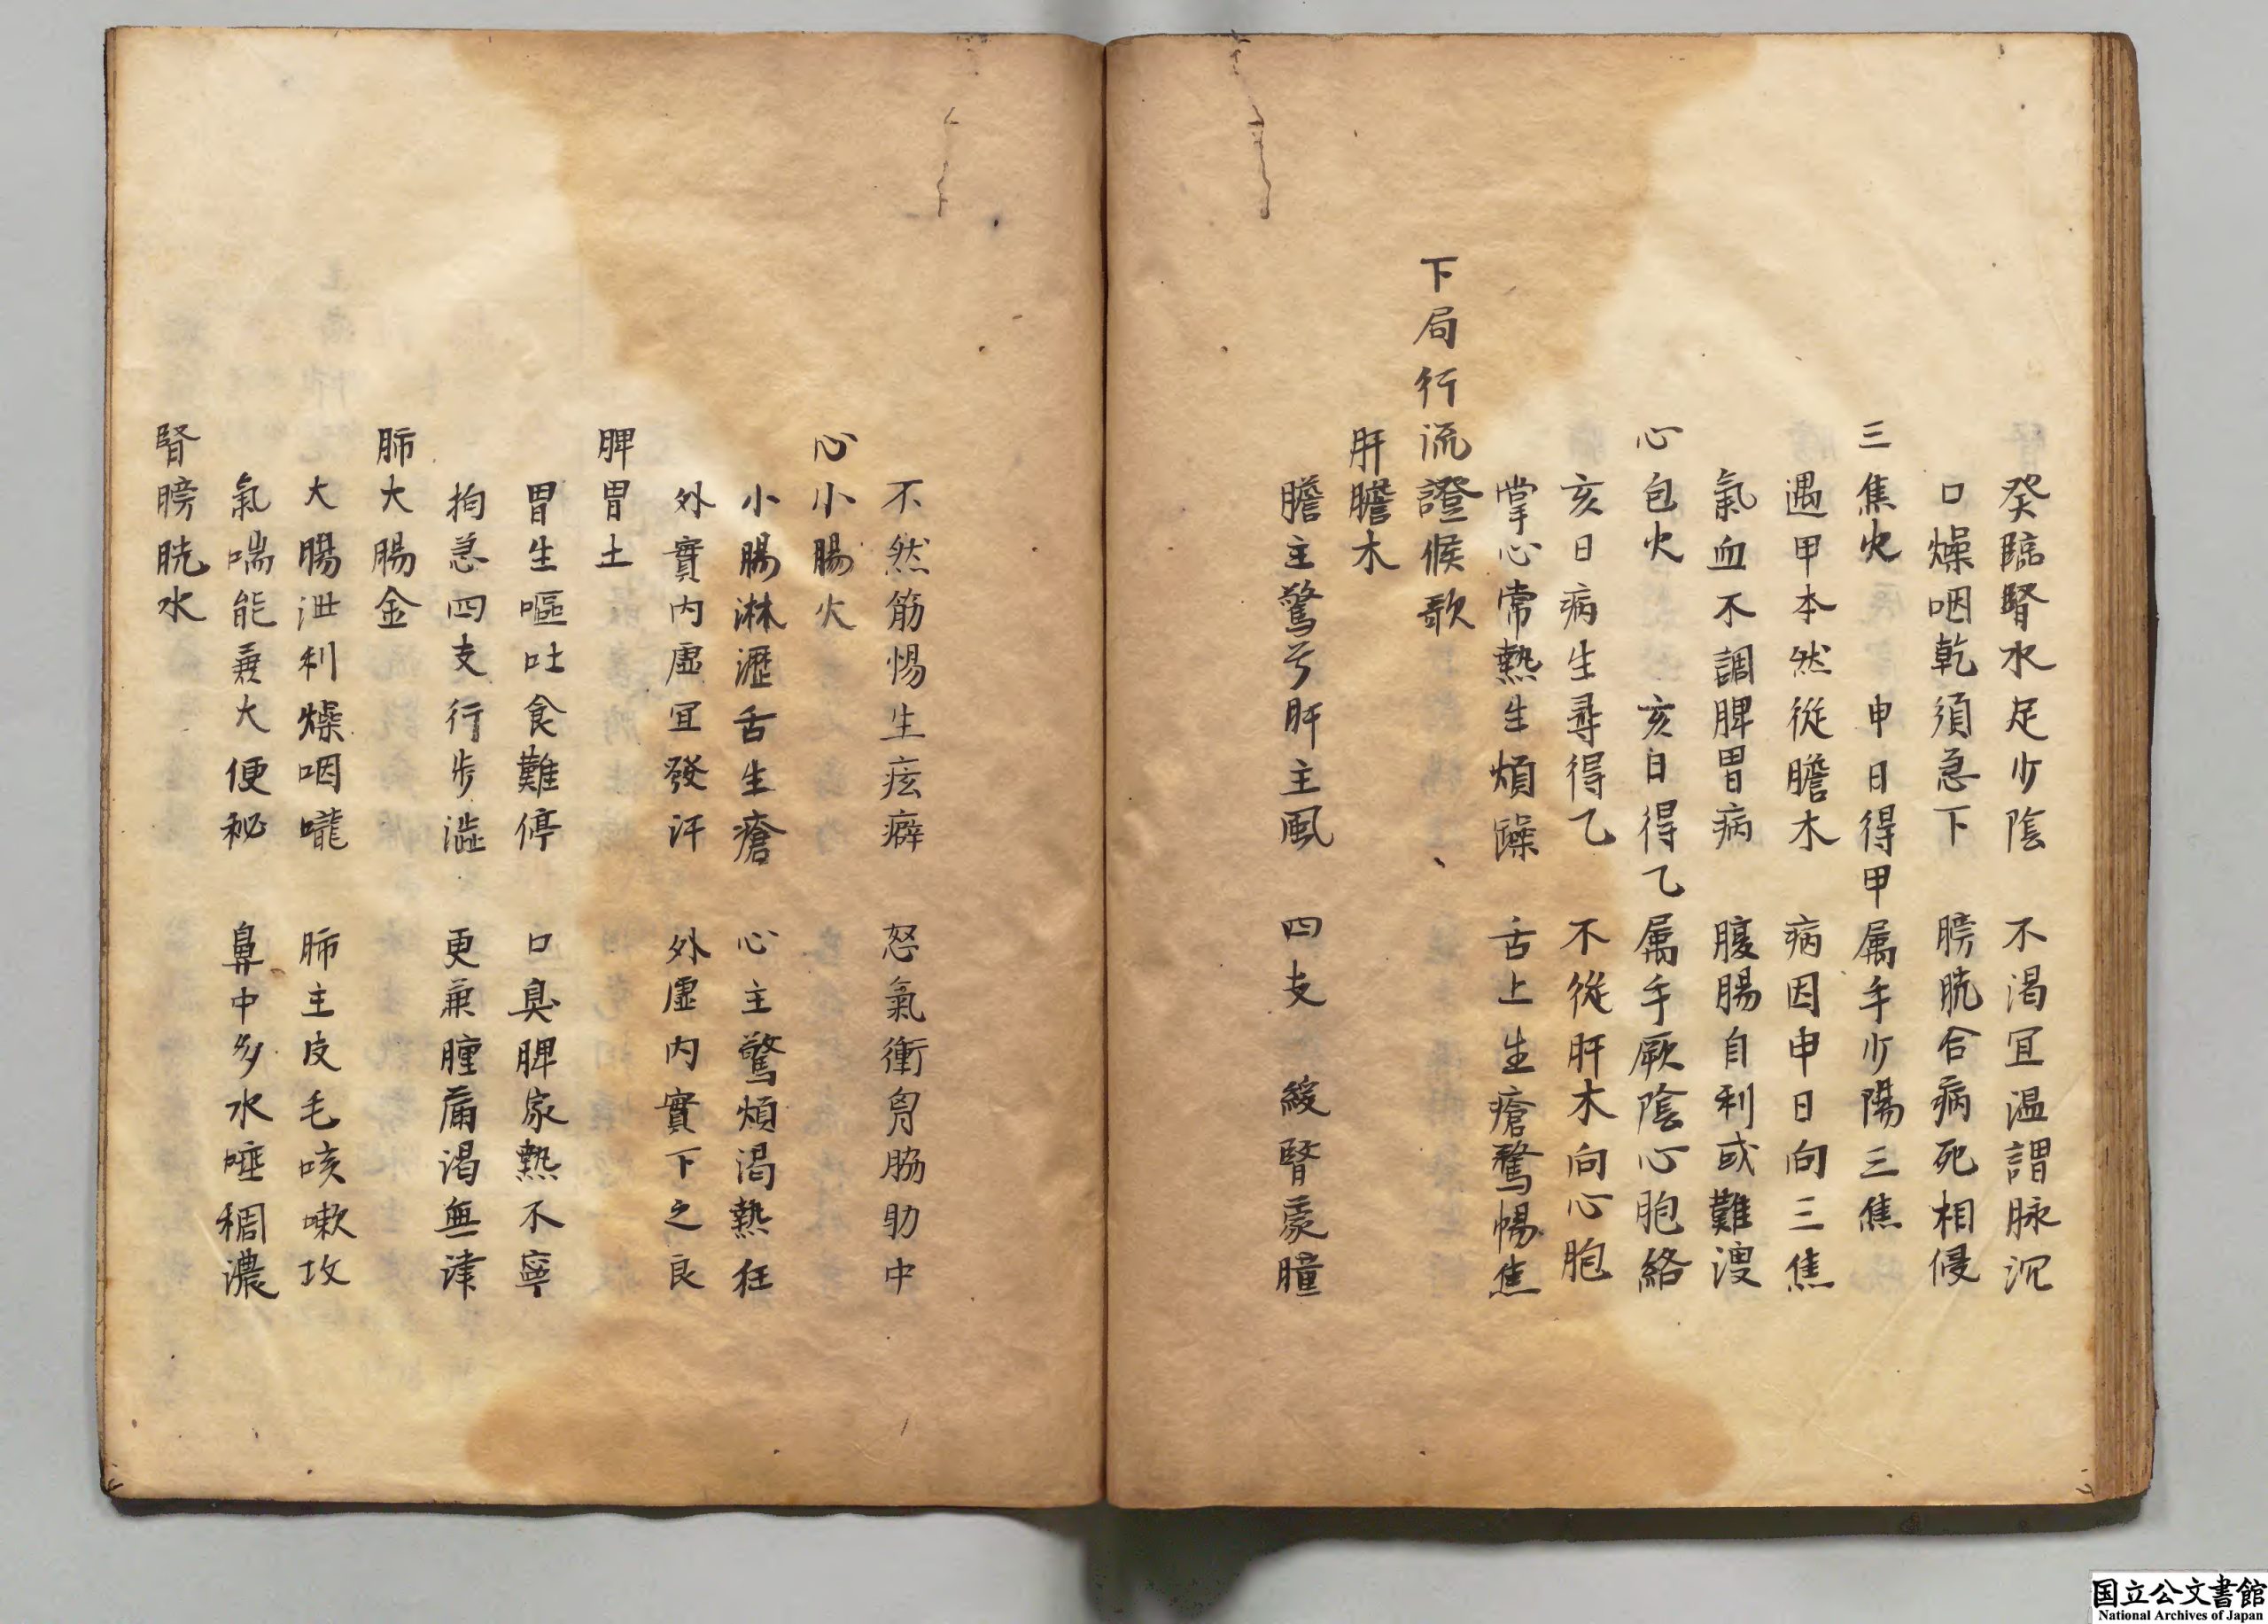 癸臨腎水足少陰　不渴宜温謂脉沉
口燥咽乾須急下　膀胱合病死相侵
三焦火　申日得甲属手少陽三焦
遇甲本然從膽木　病因申日向三焦
氣血不調脾胃病　腹腸自利或難溲
心包火　亥日得乙属手厥陰心胞絡
亥日病生尋得乙　不從肝木向心胞
掌心常熱生煩躁　舌上生瘡驚惕焦
下局行流證候歌
肝膽木
膽主驚兮肝主風　四支緩腎瞳
不然筋惕生痃癖　怒氣衝胷脇肋中
心小腸火
小腸淋瀝舌生瘡　心主驚煩渴熱狂
外實内虚宜發汗　外虚内實下之良
脾胃土
胃生嘔吐食難停　口臭脾家熱不寧
拘急四支行步澁　更兼腫滿渴無津
肺大腸金
大腸泄利燥咽嚨　肺主皮毛咳嗽攻
氣喘能兼大便秘　鼻中多水唾稠濃
腎膀胱水
国立公文書館
National Archives of Japan